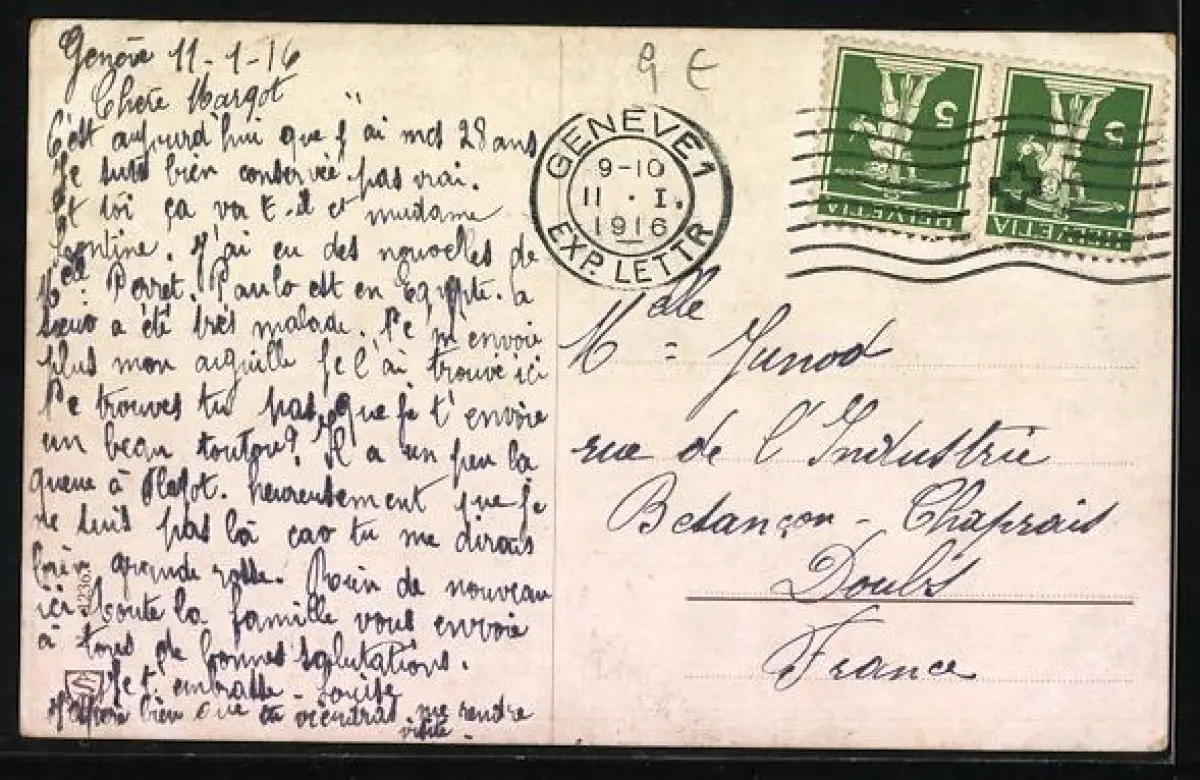 Genève 11-1-16
Chère Margot
C'est aujourd'hui que j'ai mes 28 ans
Je suis bien conservée pas vrai.
Et toi ça va t-il et madame
Léontine. J'ai eu des nouvelles de
Melle Perret. Paulo est en Egypte. Sa
sœur a été très malade. Ne m'envoie
plus mon aiguille je l'ai trouvé ici
Ne trouves tu pas que je t'envoie
un beau toutou? Il a un peu la
queue à heureusement que je
ne suis pas là car tu me dirais
bien grande rosse. Rien de nouveau
ici toute la famille vous envoie
à tous de bonnes salutations.
Je t'embrasse - Louise
J'espère bien que tu viendras me rendre
visite.
9 E
GENÈVE 1
9-10
11 . I.
1916
EXP. LETTR
5
HELVETIA
5
HELVETIA
Melle = Junod
rue de l'Industrie
Besançon - Chaprais
Doubs
France